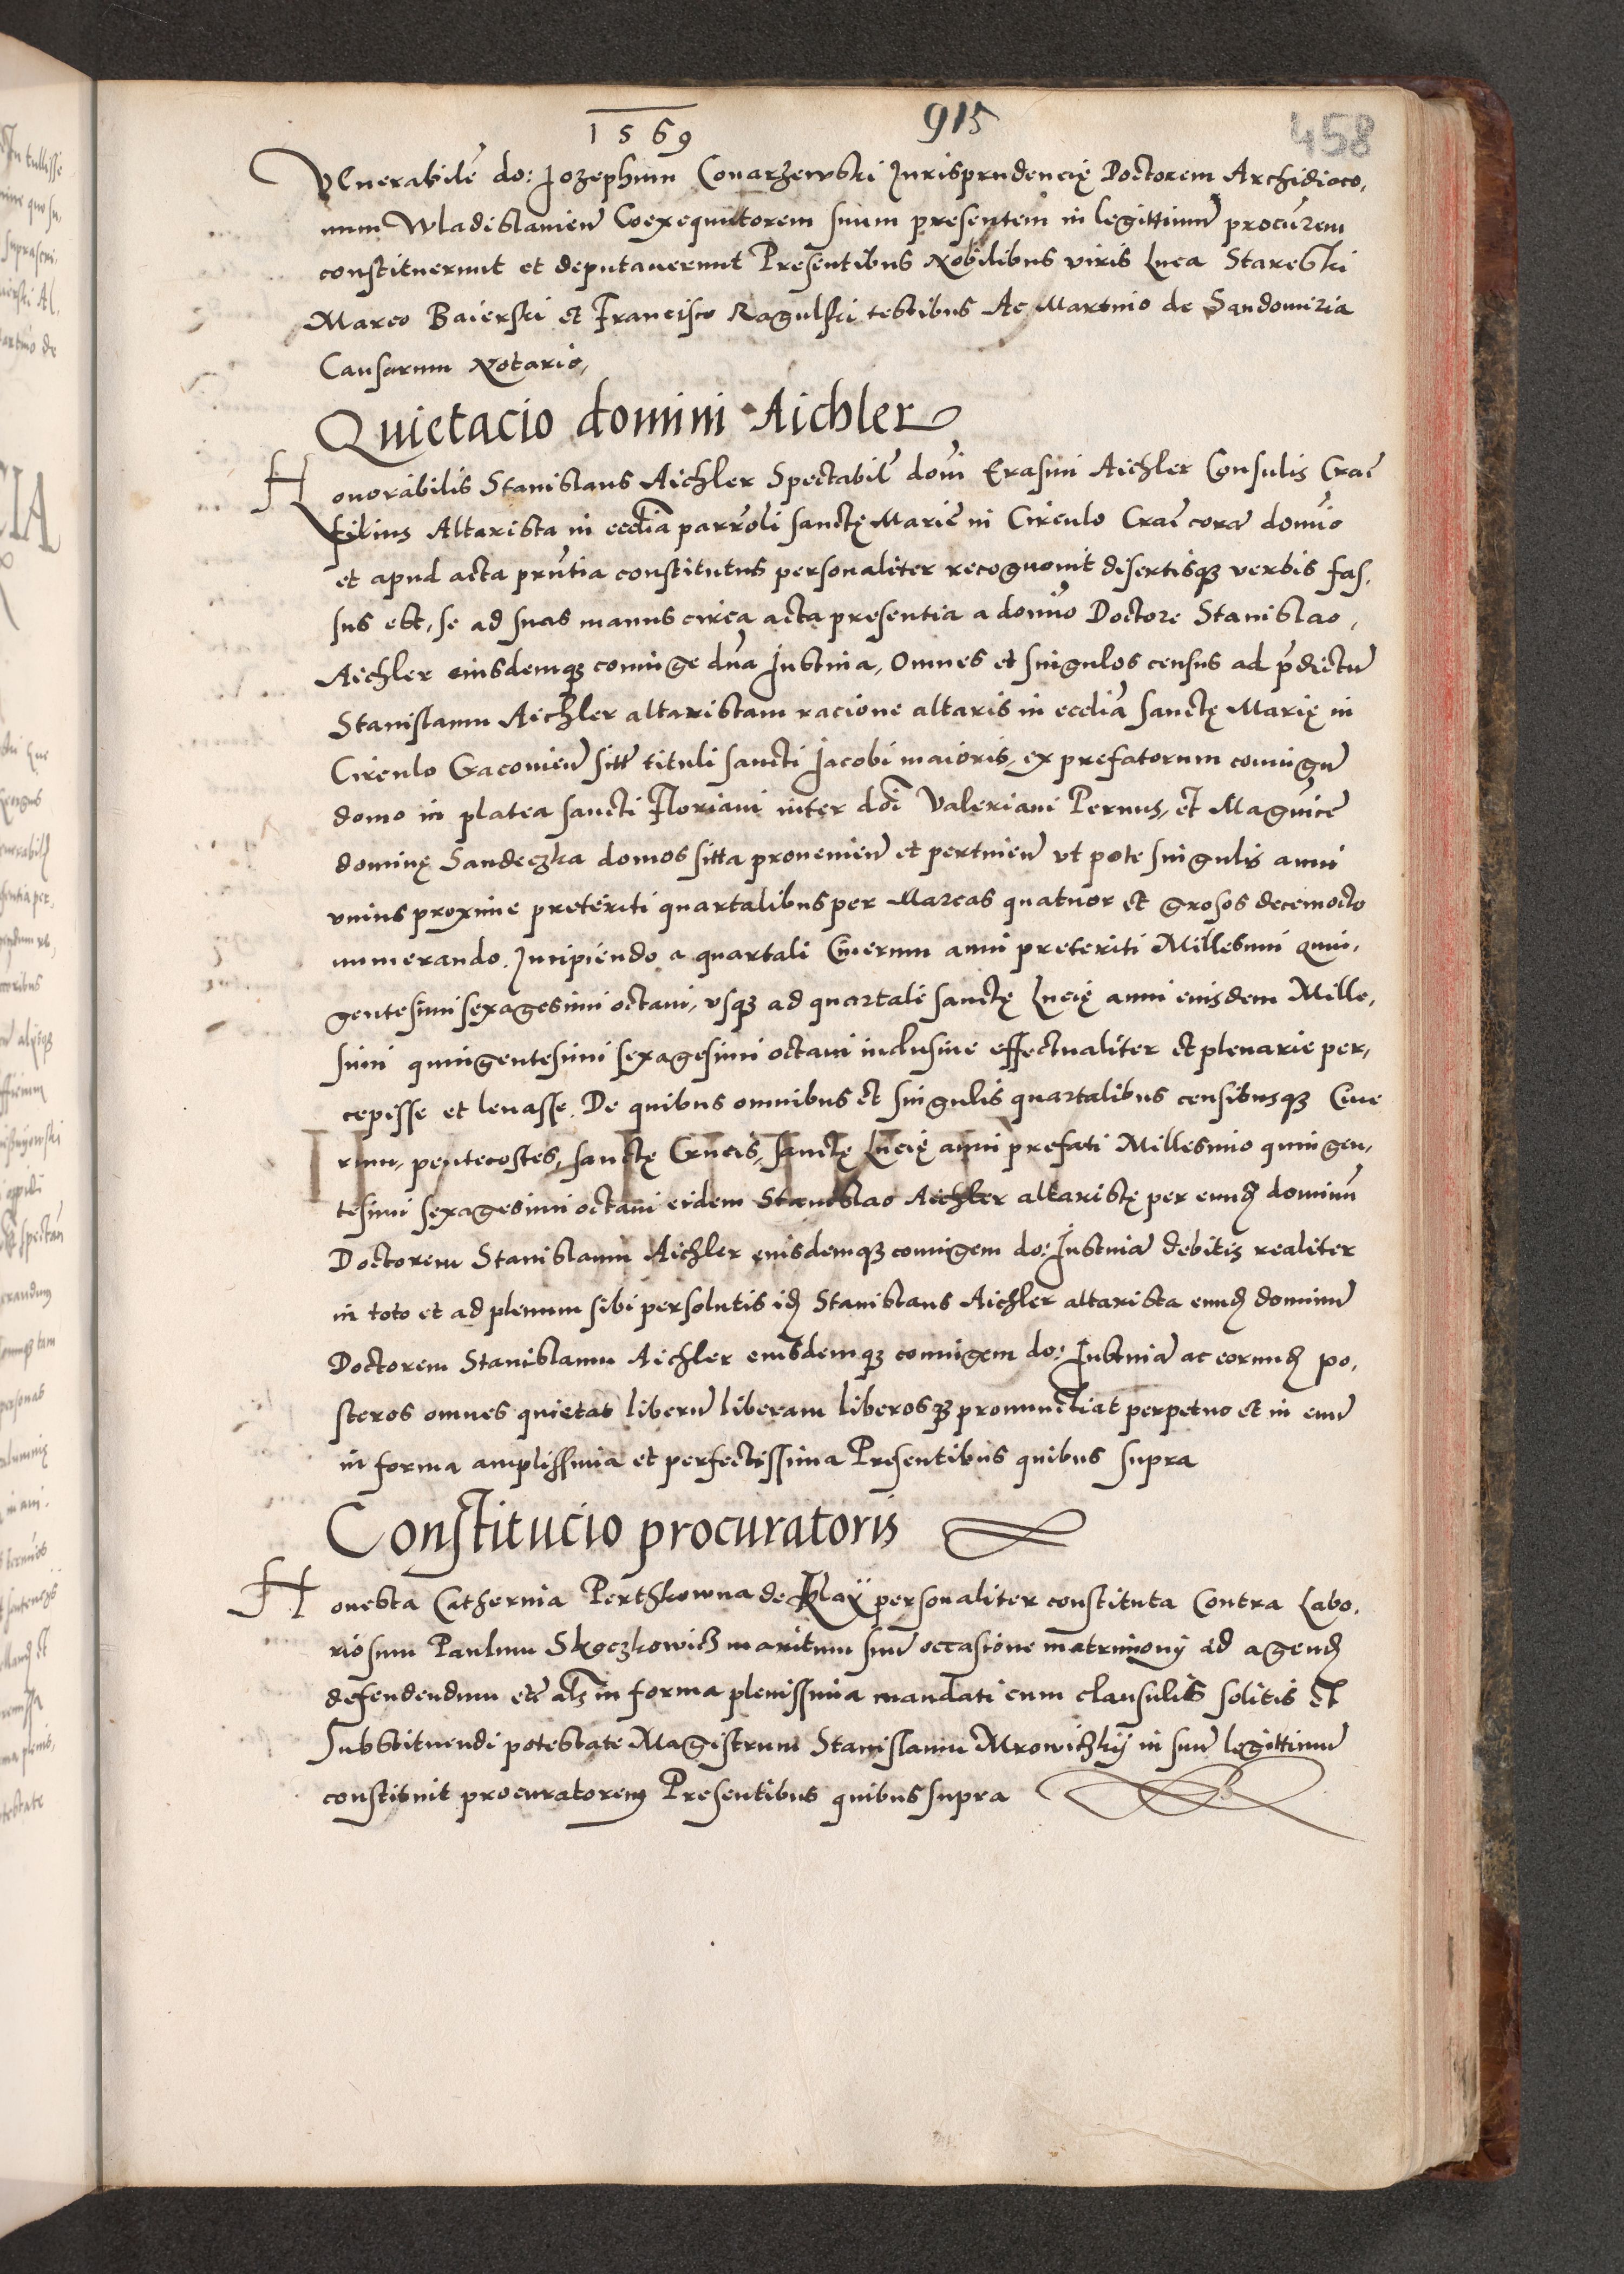 1569
915
458
Venerabilē do: Jozephum Conarzewski Jurisprudencię Doctorem Archidiaco,
num Wladislauien̄ Coexequutorem suum presentem in legittimū procūrem
constituerunt et deputauerunt Presentibus Nobilibus viris Luca Starebski
Marco Baierski et Francisco Ragulski testibus Ac Martino de Sandomiria
Causarum Notario,
Quietacio domini Aichler
Honorabilis Stanislaus Aichler Spectabil̄ domī Erasmi Aichler Consulis Crac̄
filius Altarista in ecclīa parrōli sanctę Marie in Circulo Crac̄ corā domīo
et apud acta pn̄tia constitutus personaliter recognouit disertisq3 verbis fas,
sus est, se ad suas manus circa acta presentia a domīo Doctore Stanislao,
Aichler eiusdemq3 coniuge dn̄a Justina, Omnes et singulos census ad p̄dictū
Stanislaum Aichler altaristam racione altaris in ecclīa sanctę Marię in
Circulo Cracouien̄ sitt̄ tituli sancti Jacobi maioris, ex prefatorum coniugū
domo in platea sancti Floriani inter dōi Valeriani Pernus, et Magnīce
dominę Sandeczka domos sitta prouenien̄ et pertinen̄ vt pote singulis anni
vnius proxime preteriti quartalibus per Marcas quatuor et grosos decemocto
numerando. Incipiendo a quartali Cinerum anni preteriti Millesimi quin,
gentesimi sexagesimi octaui, vsq3 ad quartale sanctę Lucię anni eiusdem Mille,
simi quingentesimi sexagesimi octaui inclusiue effectualiter et plenarie per,
cepisse et leuasse. De quibus omnibus et singulis quartalibus censibusq3 Cine
rum, pentecostes, sanctę Crucis, sanctę Lucię anni prefati Millesimo quingen,
tesimi sexagesimi octaui eidem Stanislao Aichler altaristę per eund̄ dominū
Doctorem Stanislaum Aichler eiusdemq3 coniugem do: Justinā debitis realiter
in toto et ad plenum sibi persolutis id̄ Stanislaus Aichler altarista eund̄ dominū
Doctorem Stanislaum Aichler eiusdemq3 coniugem do: Justinā ac eorund̄ po,
steros omnes quietat liberū liberam liberosq3 pronunctiat perpetuo et in euū
in forma amplissima et perfectissima Presentibus quibus supra
Constitucio procuratoris
Honesta Catherina Perthkowna de Klaÿ personaliter constituta Contra Labo,
riosum Paulum Skoczkowicz maritum suū occasione matrimonij ad agend̄
defendendum etc̄ al̄s in forma plenissima mandati cum clausulis solitis et
Substituendi potestate Magistrum Stanislaum Mrowiczkij in suū legittimū
constituit procuratorem Presentibus quibus supra